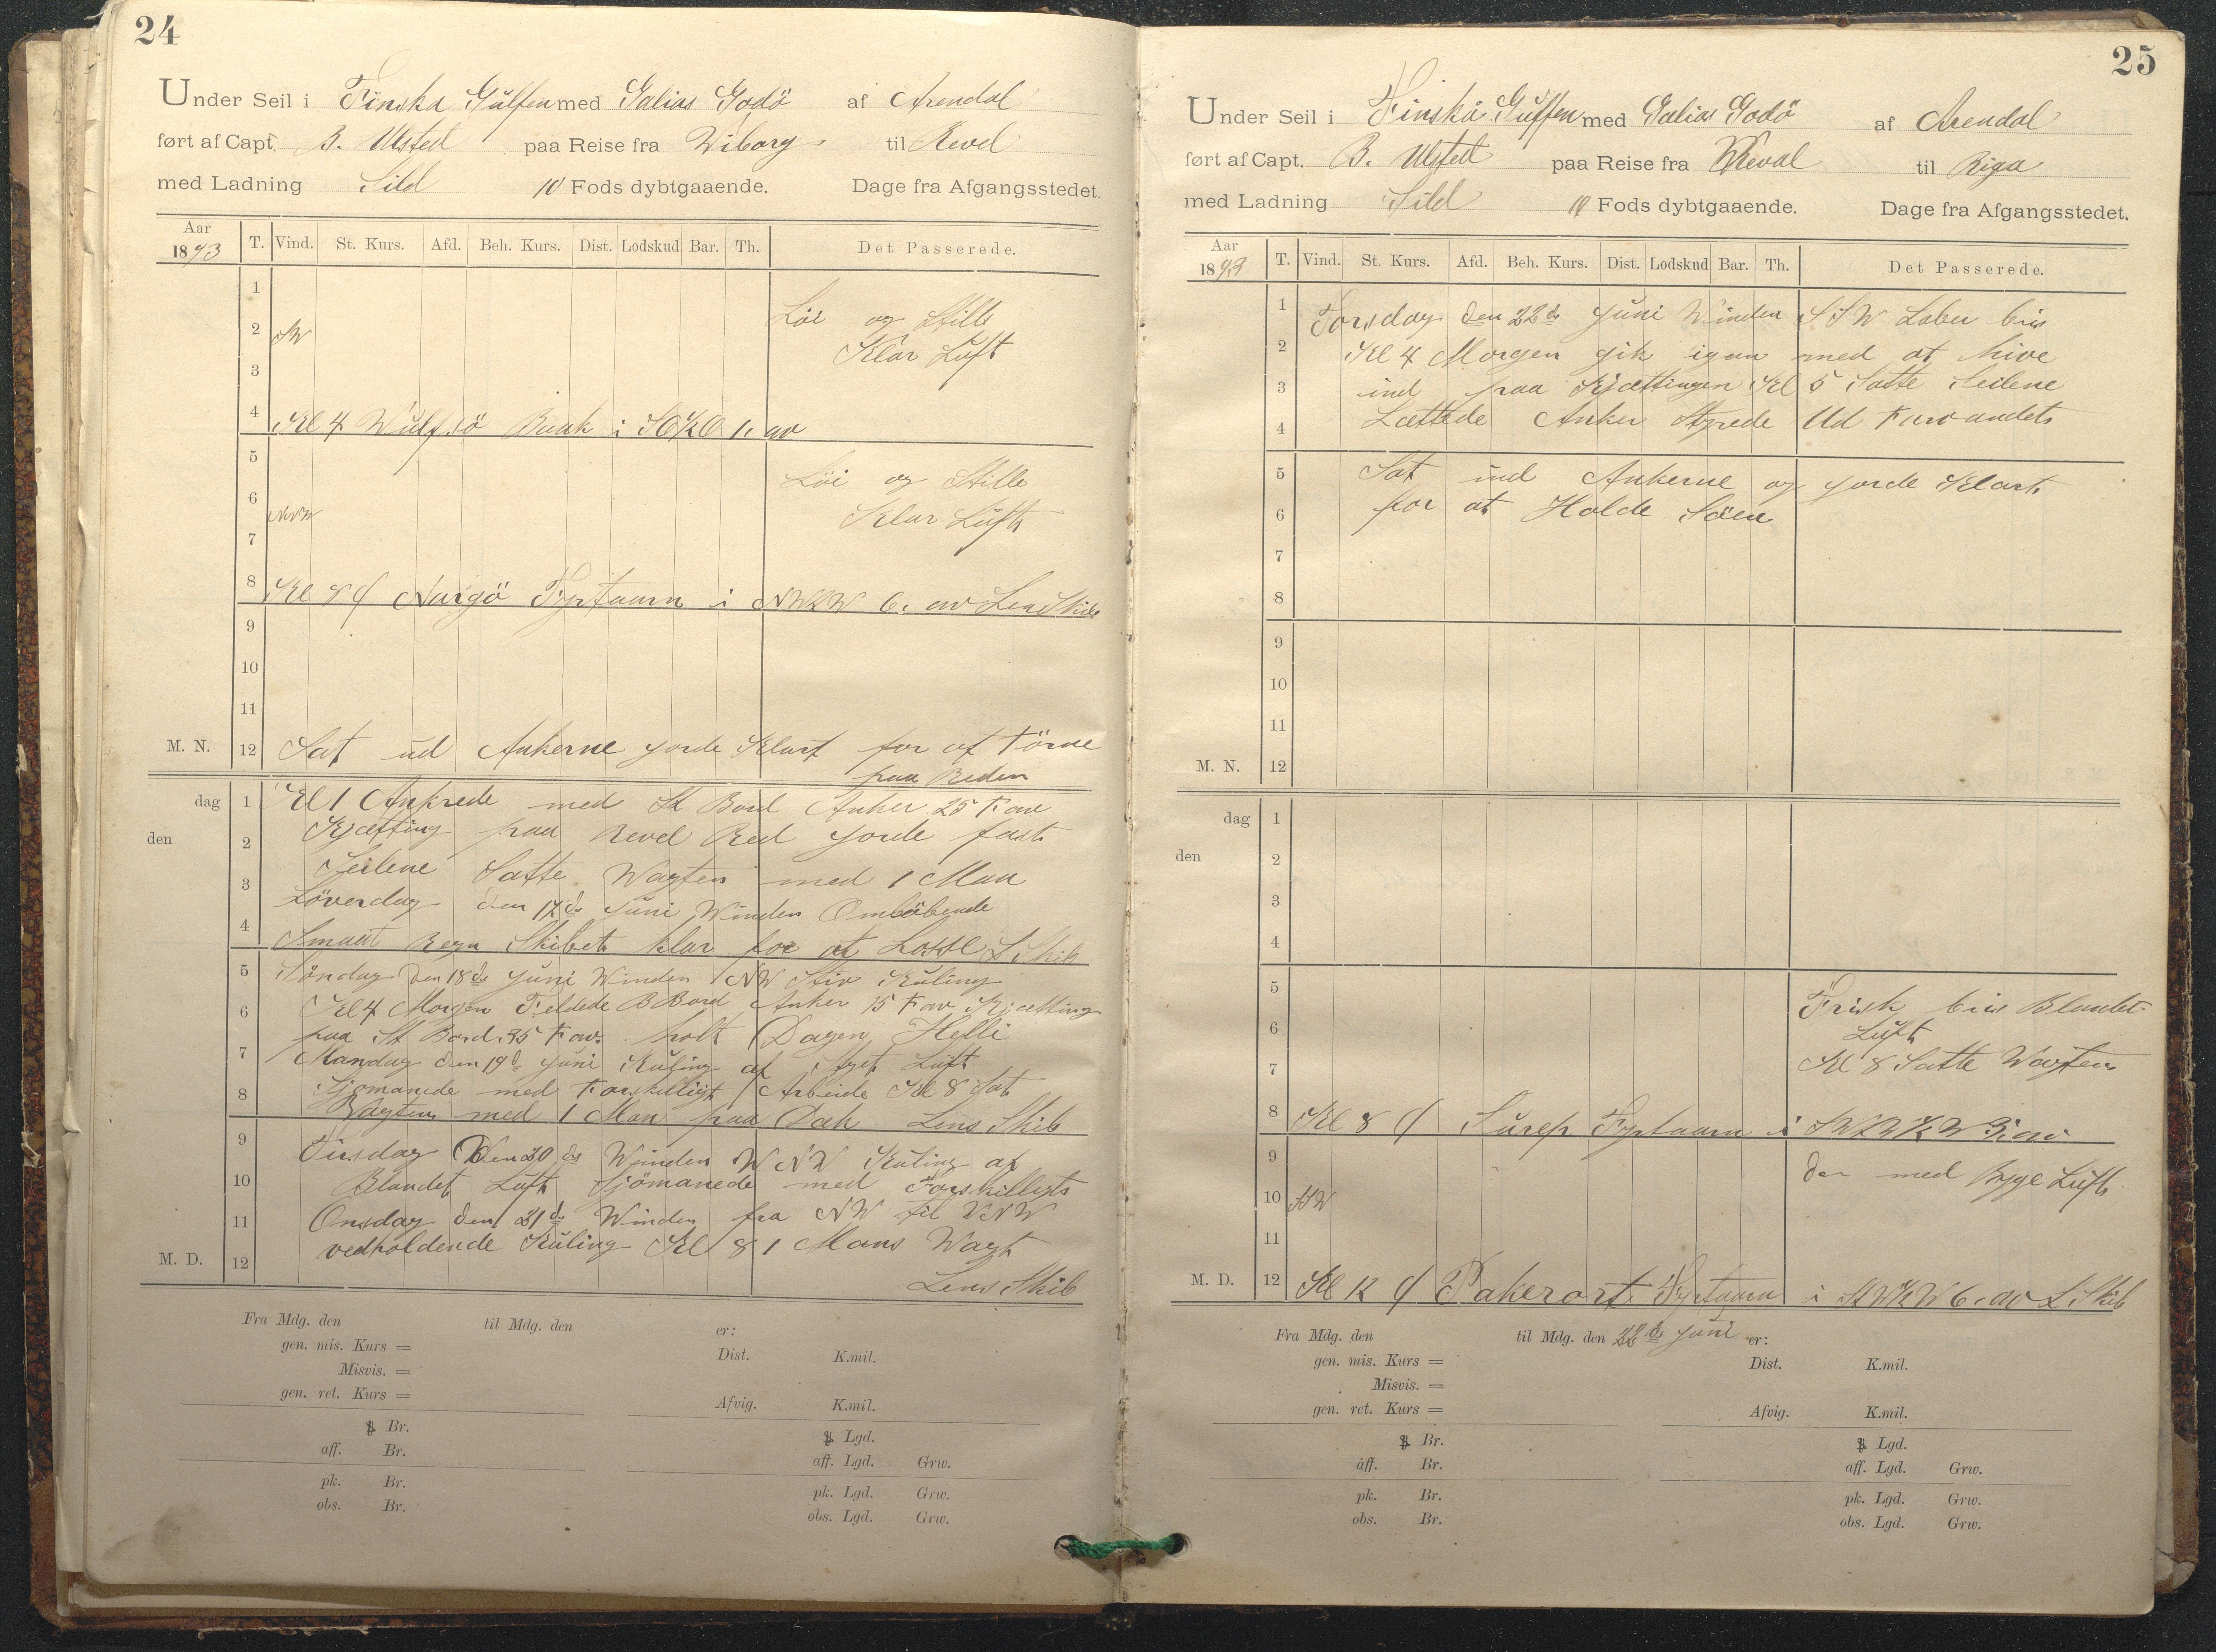 24
Under Seil i Finska Gulfen med Galias Godö af Arendal
ført af Capt. B. Ulsted paa Reise fra Wiborg til Revel
med Ladning Sild 10 Fods dybtgaaende. Dage fra Afgangsstedet.
Aar 1893 T. Vind. St. Kurs. Afd. Beh. Kurs. Dist. Lodskud Bar. Th. Det Passerede.
1 Löi og Stille
2 SW
Klar Luft
3
4 Kl 4 Wulfsö Baak i SO½O 1. av
5 Löi og Stille
6 NNW Klar Luft
7
8 Kl 8 Nargö Fyrtaarn i NW½W 6. av Lens Skib
9
10
11
M. N. 12 Sat ud Ankerne jorde Klart for at Törne
paa Reden
dag 1 Kl 1 Ankrede med St Bord Anker 25 Fav
den 2 Kjætting paa Revel Red jorde fast
3 Seilene Satte Wagten med 1 Man
Löverdag den 17de Juni Winden Omlöbende
4 Smaat Regn Skibet klar for at Losse L. Skib
5 Söndag den 18de Juni Winden NW Stiv Kuling
6 Kl 4 Morgen Feldede B Bord Anker 15 Fav Kjætting
paa St Bord 35 Fav. holt Dagen Helli
7 Mandag den 19de Juni Kuling af Luft
8 Sjömanede med Forskilligt Arbeide Kl 8 Sat
Wagten med 1 Man paa Dæk Lens Skib
9 Tirsdag Den 20de Winden WNW Kuling af
10 Blandet Luft Sjömanede med Forskilligts
11 Onsdag den 21de Winden fra NW til NNW
M. D. 12 vedholdende Kuling Kl 8 1 Mans Wagt
Lens Skib
Fra Mdg. den til Mdg. den er:
gen. mis. Kurs = Dist. K.mil.
Misvis. =
gen. ret. Kurs = Afvig. K.mil.
Br. Lgd.
aff. Br. aff. Lgd. Grw.
pk. Br. pk. Lgd. Grw.
obs. Br. obs. Lgd. Grw.
25
Under Seil i Finska Guffen med Galias Godö af Arendal
ført af Capt. B. Ulsted paa Reise fra Reval til Riga
med Ladning Sild 10 Fods dybtgaaende. Dage fra Afgangsstedet.
Aar 1893 T. Vind. St. Kurs. Afd. Beh. Kurs. Dist. Lodskud Bar. Th. Det Passerede.
1 Torsdag den 22de Juni Winden SSW Laber bris
2 Kl 4 Morgen gik igan med at hive
3 ind paa Kjættingen Kl 5 Satte Seilene
4 Lættede Anker Styrede Ud Farvandet
5 Sat ind Ankerne og jorde Klart
6 for at Holde Söen
7
8
9
10
11
M. N. 12
dag 1
den 2
3
4
5 Frisk bris Blandet
6 Luft
7 Kl 8 Satte Wagten
8 Kl 8 Surep Fyrtaarn i SW½W av
9 den med Byge Luft
10 SW
11
M. D. 12 Kl 12 Pakerort Fyrtaarn i 6. av L. Skib
Fra Mdg. den til Mdg. den 22de Juni er:
gen. mis. Kurs = Dist. K.mil.
Misvis. =
gen. ret. Kurs = Afvig. K.mil.
Br. Lgd.
aff. Br. aff. Lgd. Grw.
pk. Br. pk. Lgd. Grw.
obs. Br. obs. Lgd. Grw.